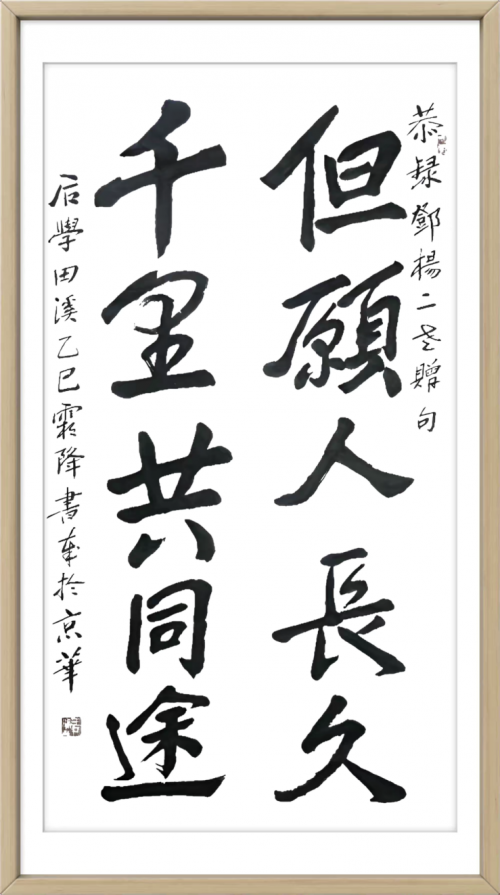 恭録鄧楊二老贈句
但願人長久
千里共同途
后學田溪乙巳霜降書奉於京華